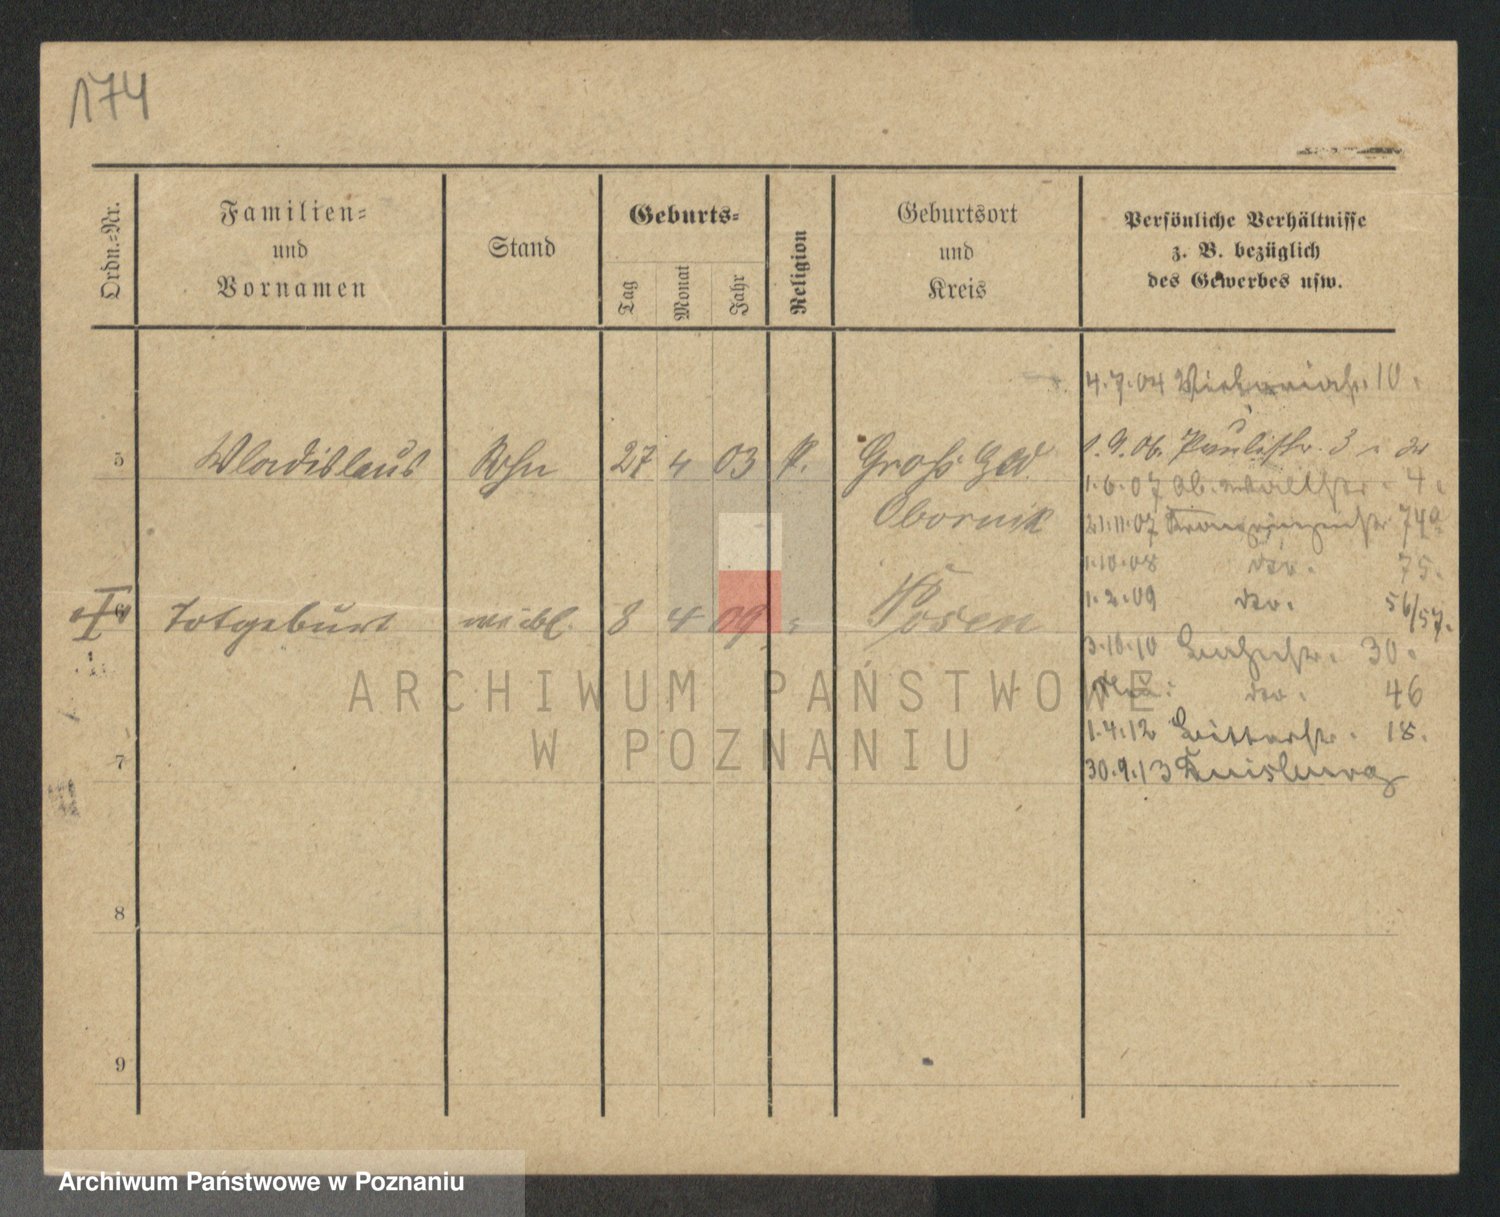 174
Ordn.=Nr.
Familien=
und
Vornamen
Stand
Geburts=
Tag
Monat
Jahr
Religion
Geburtsort
und
Kreis
Persönliche Verhältnisse
z. B. bezüglich
des Gewerbes usw.
4.7.04 Viktoriastr. 10.
5 Wladislaus Sohn 27 4 03 k. Groß
Obornik
1.9.06. Paulistr. 3
1.6.07 Ob. Wallstr. 4.
21.11.07 Kronprinzenstr 74a
1.10.08 do. 75.
1.2.09 do. 56/57.
6 Totgeburt weibl. 8 4 09 Posen
3.10.10 30.
do. 46
1.4.12 Ritterstr. 18.
30.9.13 Duisburg
7
8
9
ARCHIWUM PAŃSTWOWE
W POZNANIU
Archiwum Państwowe w Poznaniu